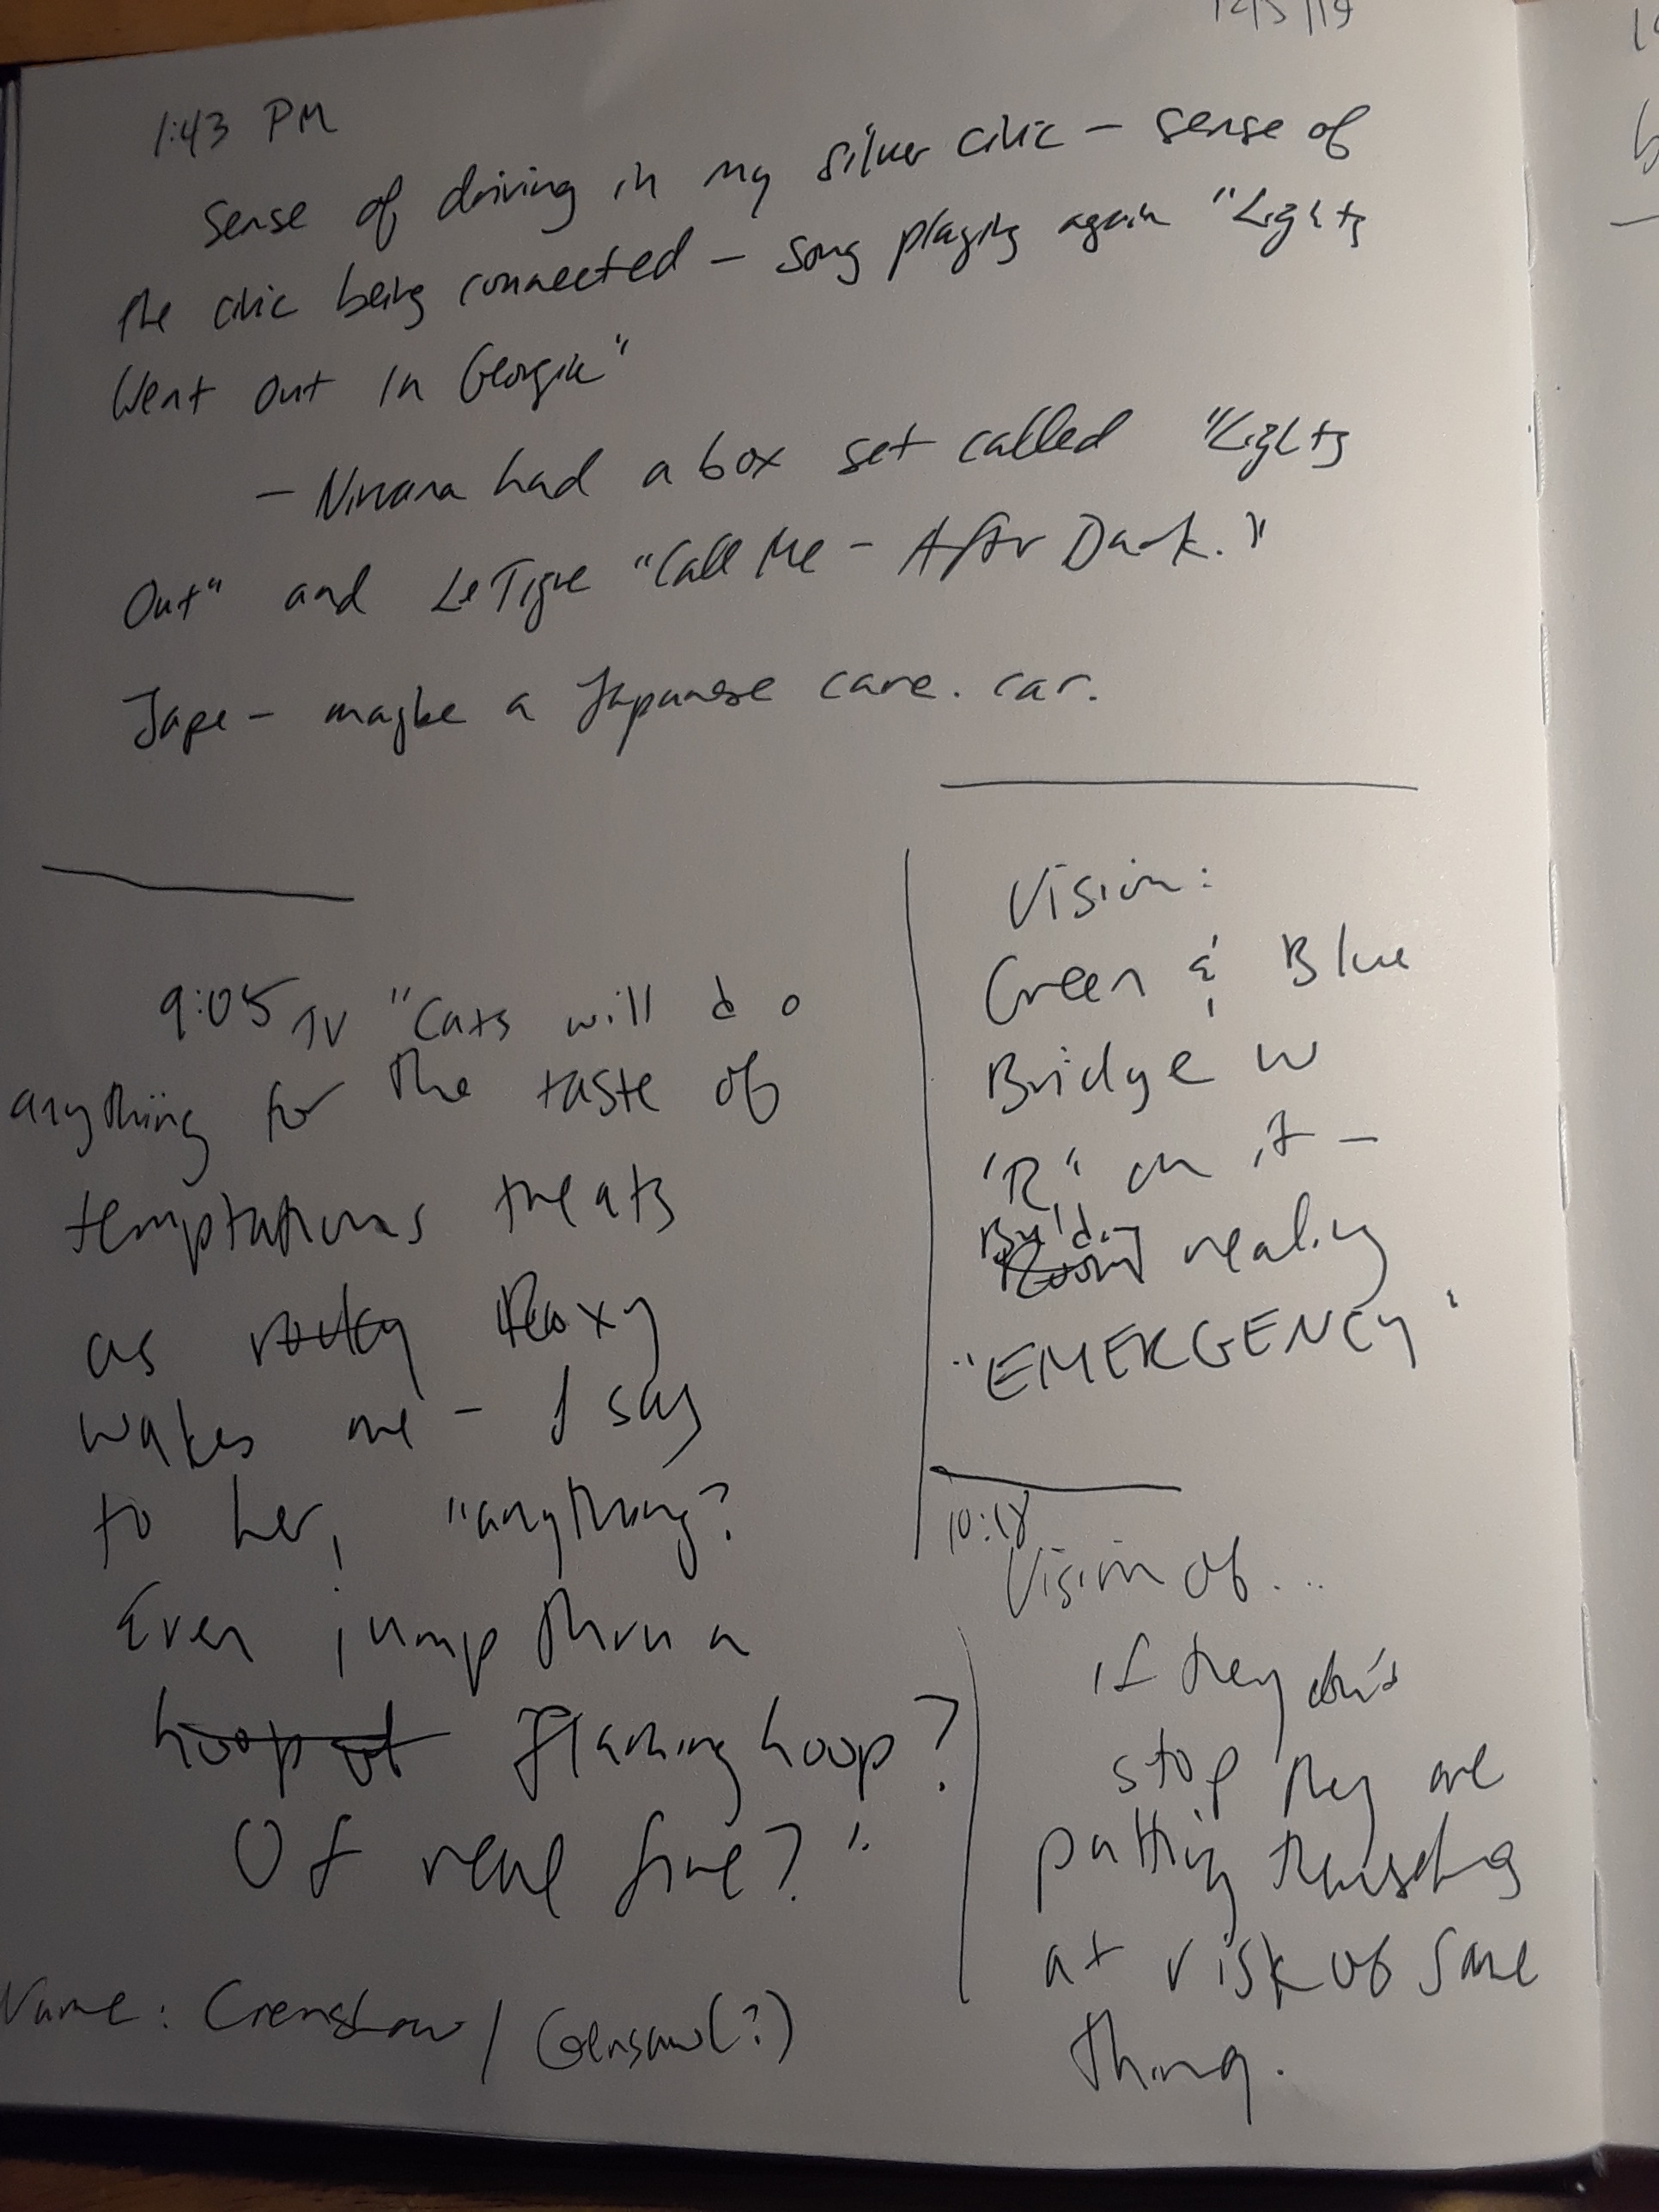 12/5/19
1:43 PM
Sense of driving in my silver civic – sense of
the civic being connected – song playing again "Lights
Went Out In Georgia"
– Nirvana had a box set called "Lights
Out" and Le Tigre "Call Me – After Dark."
Jape – maybe a Japanese care. car.
9:05 TV "Cats will do
anything for the taste of
temptations treats
as Roxy
wakes me – I say
to her, "anything?
Even jump thru a
hoop of flaming hoop?
Of real fire?"
Name: Crenshaw / Gensaw(?)
Vision:
Green & Blue
Bridge w
"R" on it –
Building Room
"EMERGENCY"
10:18
Vision of...
if they don't
stop they are
putting themselves
at risk of same
thing.